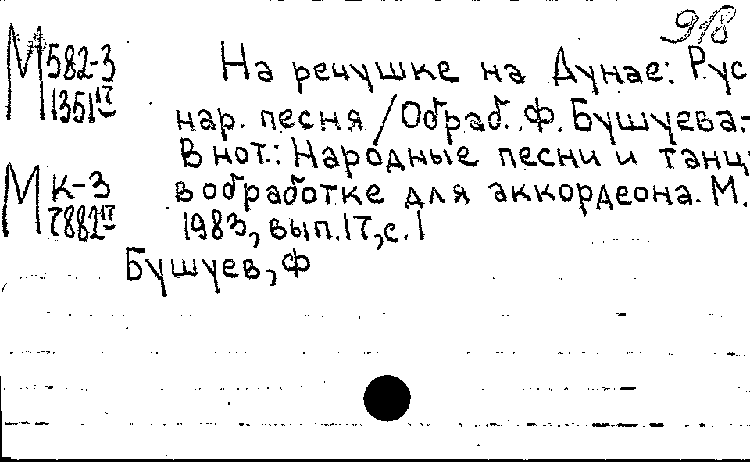 918
М 582-3
1351 17
На речушке на Дунае: Рус
нар. песня / Обраб. Ф. Бушуева.-
В нот.: Народные песни и танц
М к-3
7882 17
в обработке для аккордеона. М.
1983, вып. 17, с. 1
Бушуев, Ф